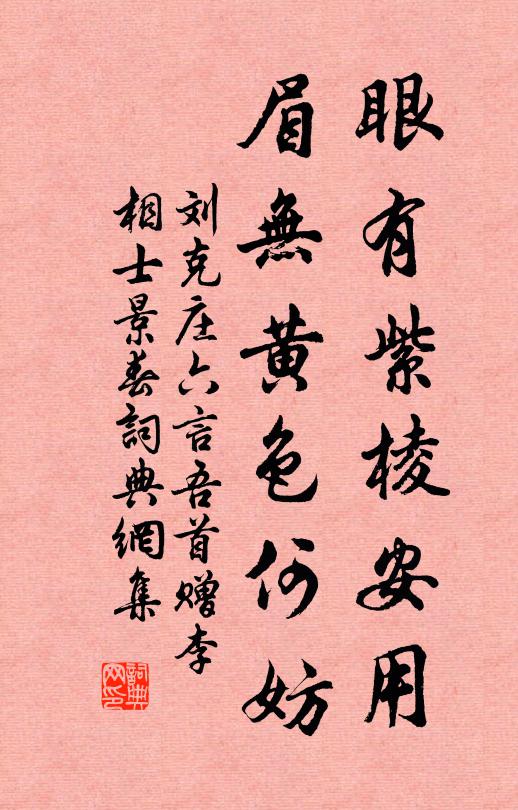 眼有紫棱安用
眉無黄色何妨
刘克庄六言吾首赠李
相士景春詞典網集
詞典网印